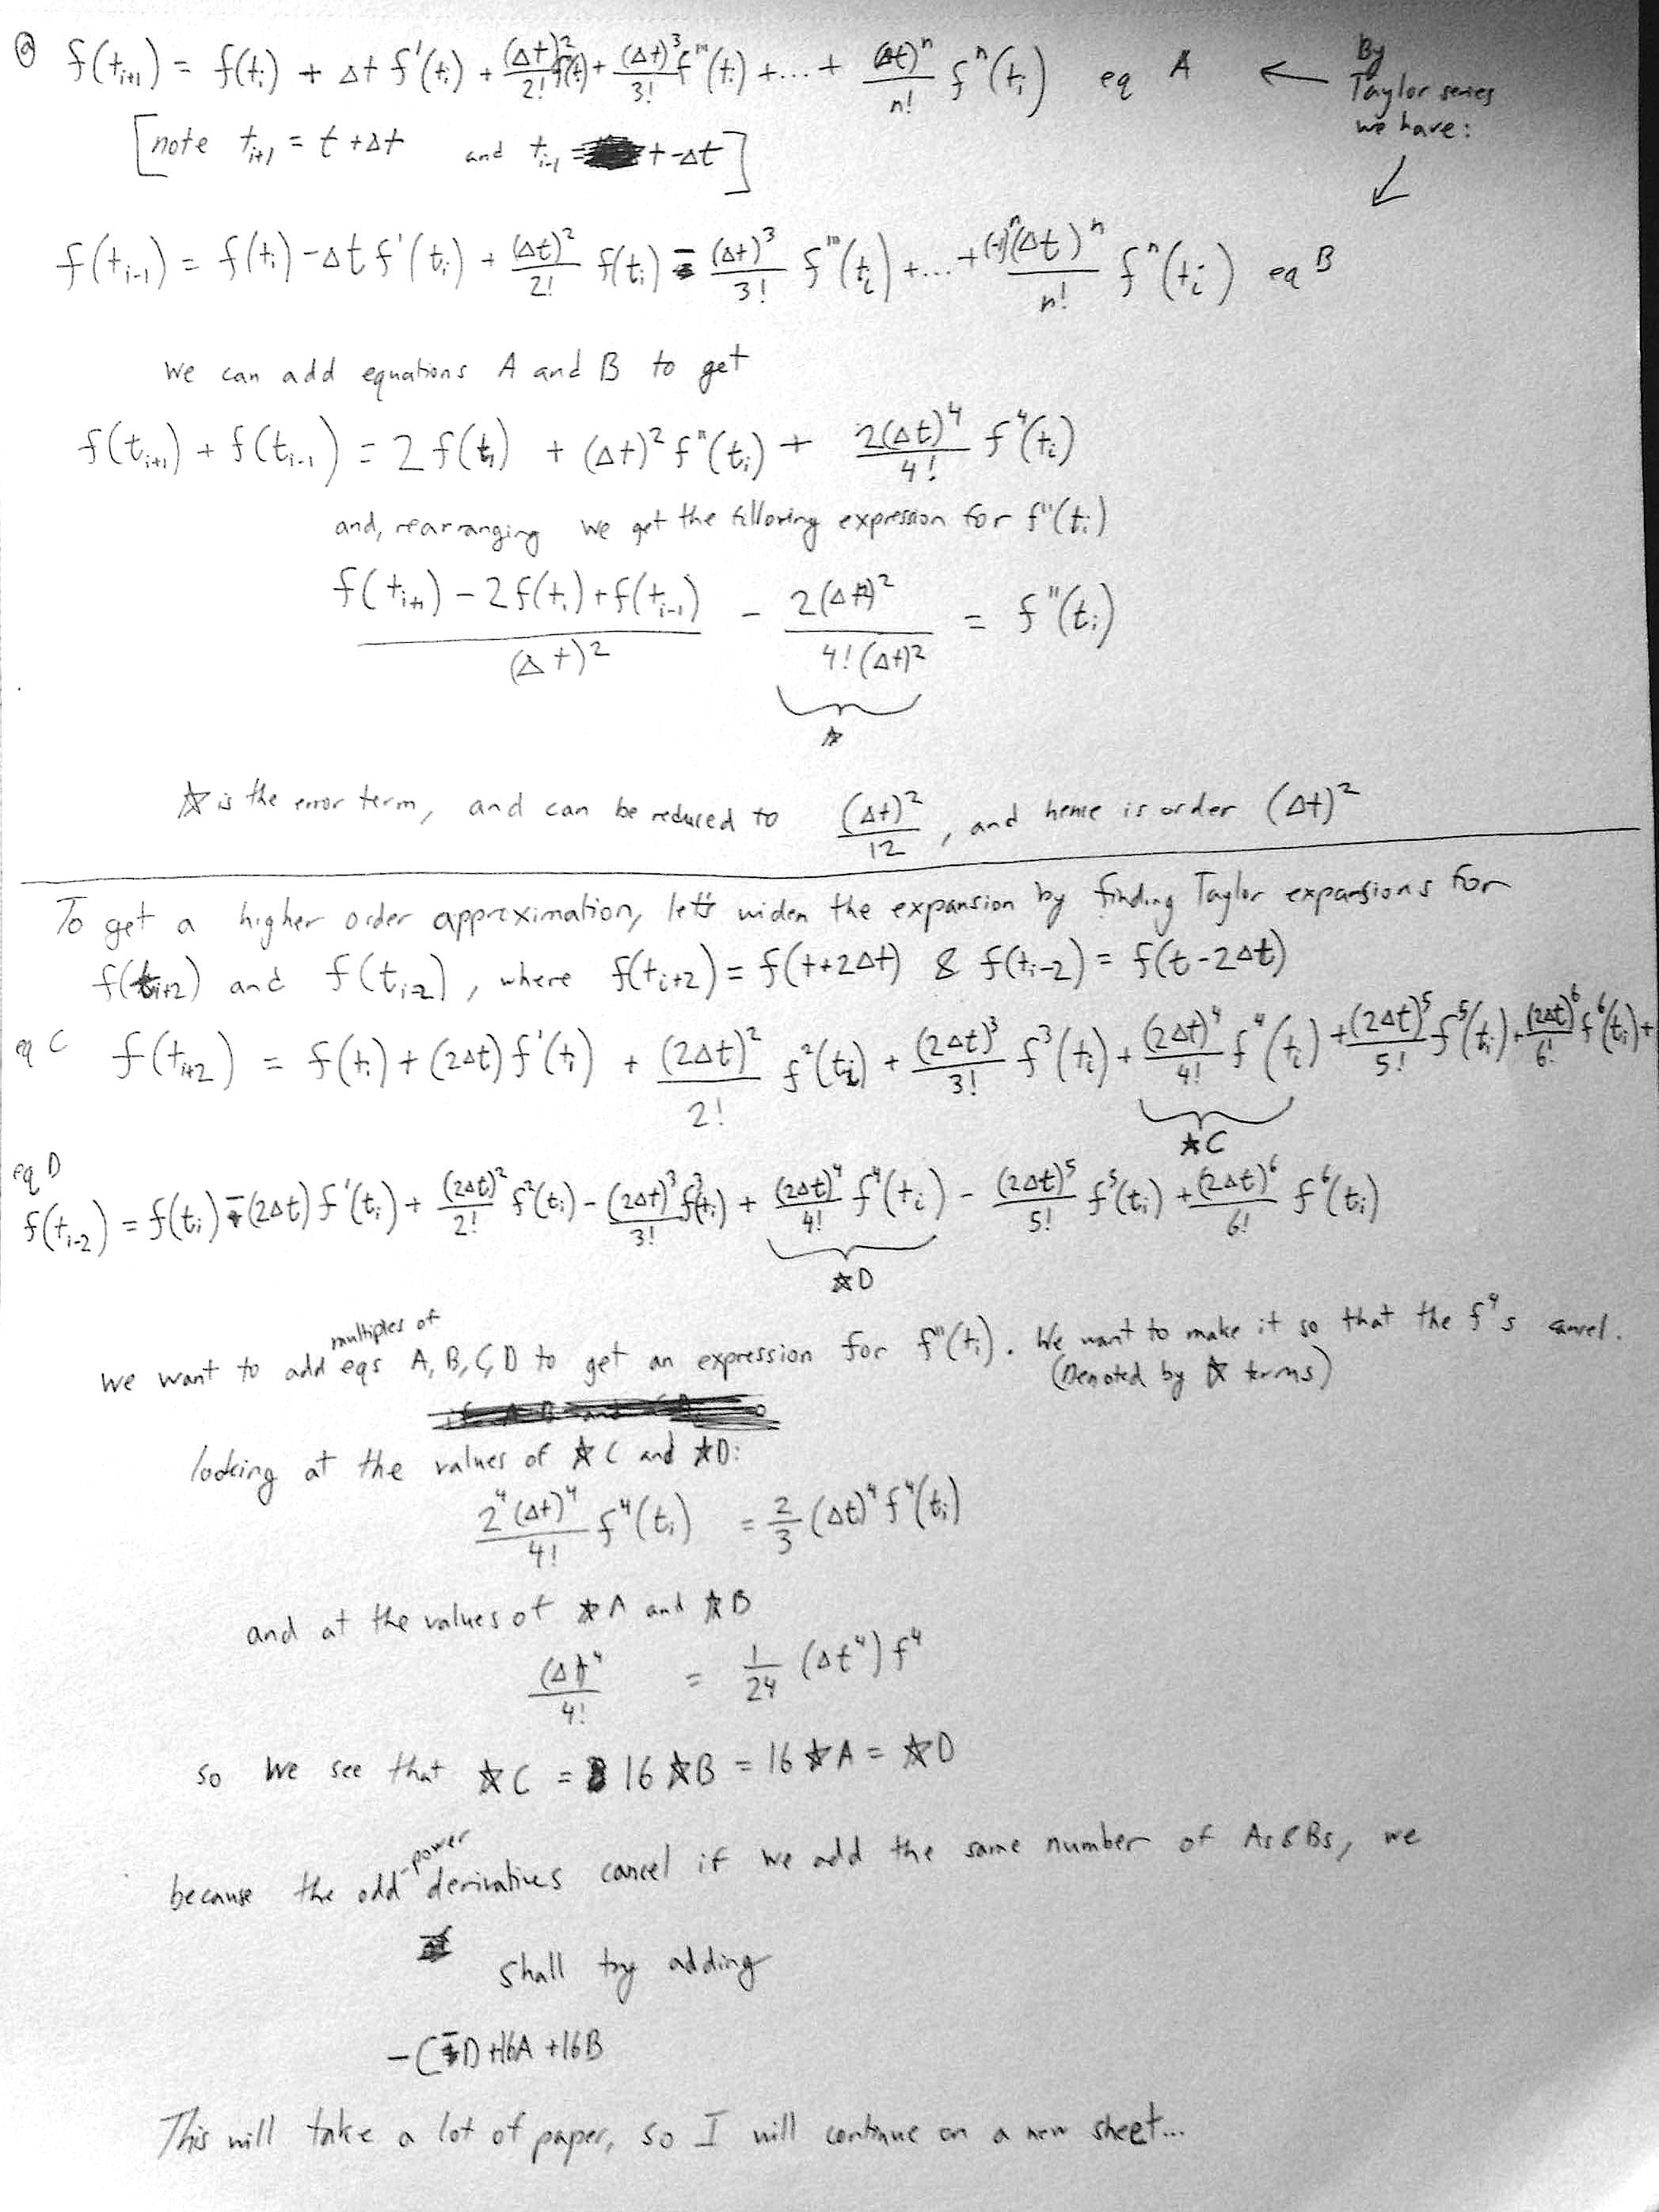 @ f(t_{i+1}) = f(t_i) + Δt f'(t_i) + (Δt)^2/2! f(t_i) + (Δt)^3/3! f'''(t_i) + ... + (Δt)^n/n! f^n(t_i) eq A ← By Taylor series we have: ↙
[note t_{i+1} = t + Δt and t_{i-1} = t - Δt]
f(t_{i-1}) = f(t_i) - Δt f'(t_i) + (Δt)^2/2! f(t_i) - (Δt)^3/3! f'''(t_i) + ... + (-1)^n (Δt)^n/n! f^n(t_i) eq B
we can add equations A and B to get
f(t_{i+1}) + f(t_{i-1}) = 2 f(t_i) + (Δt)^2 f''(t_i) + 2(Δt)^4/4! f^4(t_i)
and, rearranging we get the following expression for f''(t_i)
f(t_{i+1}) - 2f(t_i) + f(t_{i-1}) / (Δt)^2 - 2(Δt)^2 / 4!(Δt)^2 = f''(t_i)
☆
☆ is the error term, and can be reduced to (Δt)^2/12, and hence is order (Δt)^2
To get a higher order approximation, let's widen the expansion by finding Taylor expansions for
f(t_{i+2}) and f(t_{i-2}), where f(t_{i+2}) = f(t+2Δt) & f(t_{i-2}) = f(t-2Δt)
eq C f(t_{i+2}) = f(t_i) + (2Δt) f'(t_i) + (2Δt)^2/2! f^2(t_i) + (2Δt)^3/3! f^3(t_i) + (2Δt)^4/4! f^4(t_i) + (2Δt)^5/5! f^5(t_i) + (2Δt)^6/6! f^6(t_i) +
☆C
eq D
f(t_{i-2}) = f(t_i) - (2Δt) f'(t_i) + (2Δt)^2/2! f^2(t_i) - (2Δt)^3/3! f^3(t_i) + (2Δt)^4/4! f^4(t_i) - (2Δt)^5/5! f^5(t_i) + (2Δt)^6/6! f^6(t_i)
☆D
we want to add multiples of eqs A, B, C, D to get an expression for f''(t_i). We want to make it so that the f^4's cancel.
(Denoted by ☆ terms)
looking at the values of ☆C and ☆D:
2^4(Δt)^4/4! f^4(t_i) = 2/3 (Δt)^4 f^4(t_i)
and at the values of ☆A and ☆B
(Δt)^4/4! = 1/24 (Δt^4) f^4
so we see that ☆C = 16 ☆B = 16 ☆A = ☆D
because the odd-power derivatives cancel if we add the same number of As & Bs, we
shall try adding
-C - D + 16A + 16B
This will take a lot of paper, so I will continue on a new sheet...